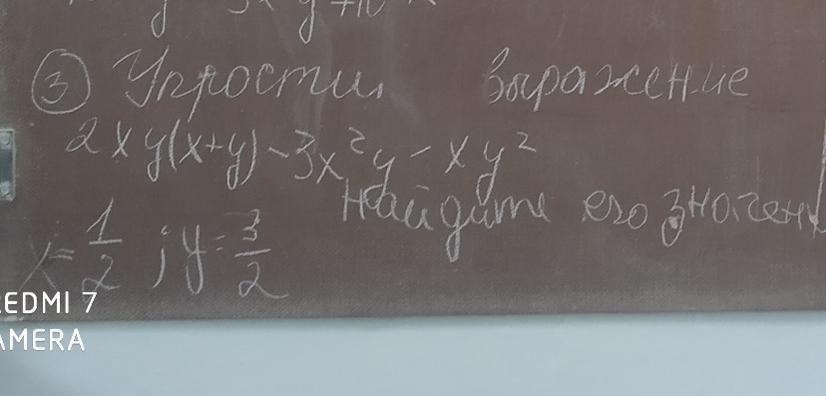 ③ Упростил выражение
2xy(x+y)-3x²y-xy²
Найдите его значени
x=1/2; y=3/2
REDMI 7
AMERA